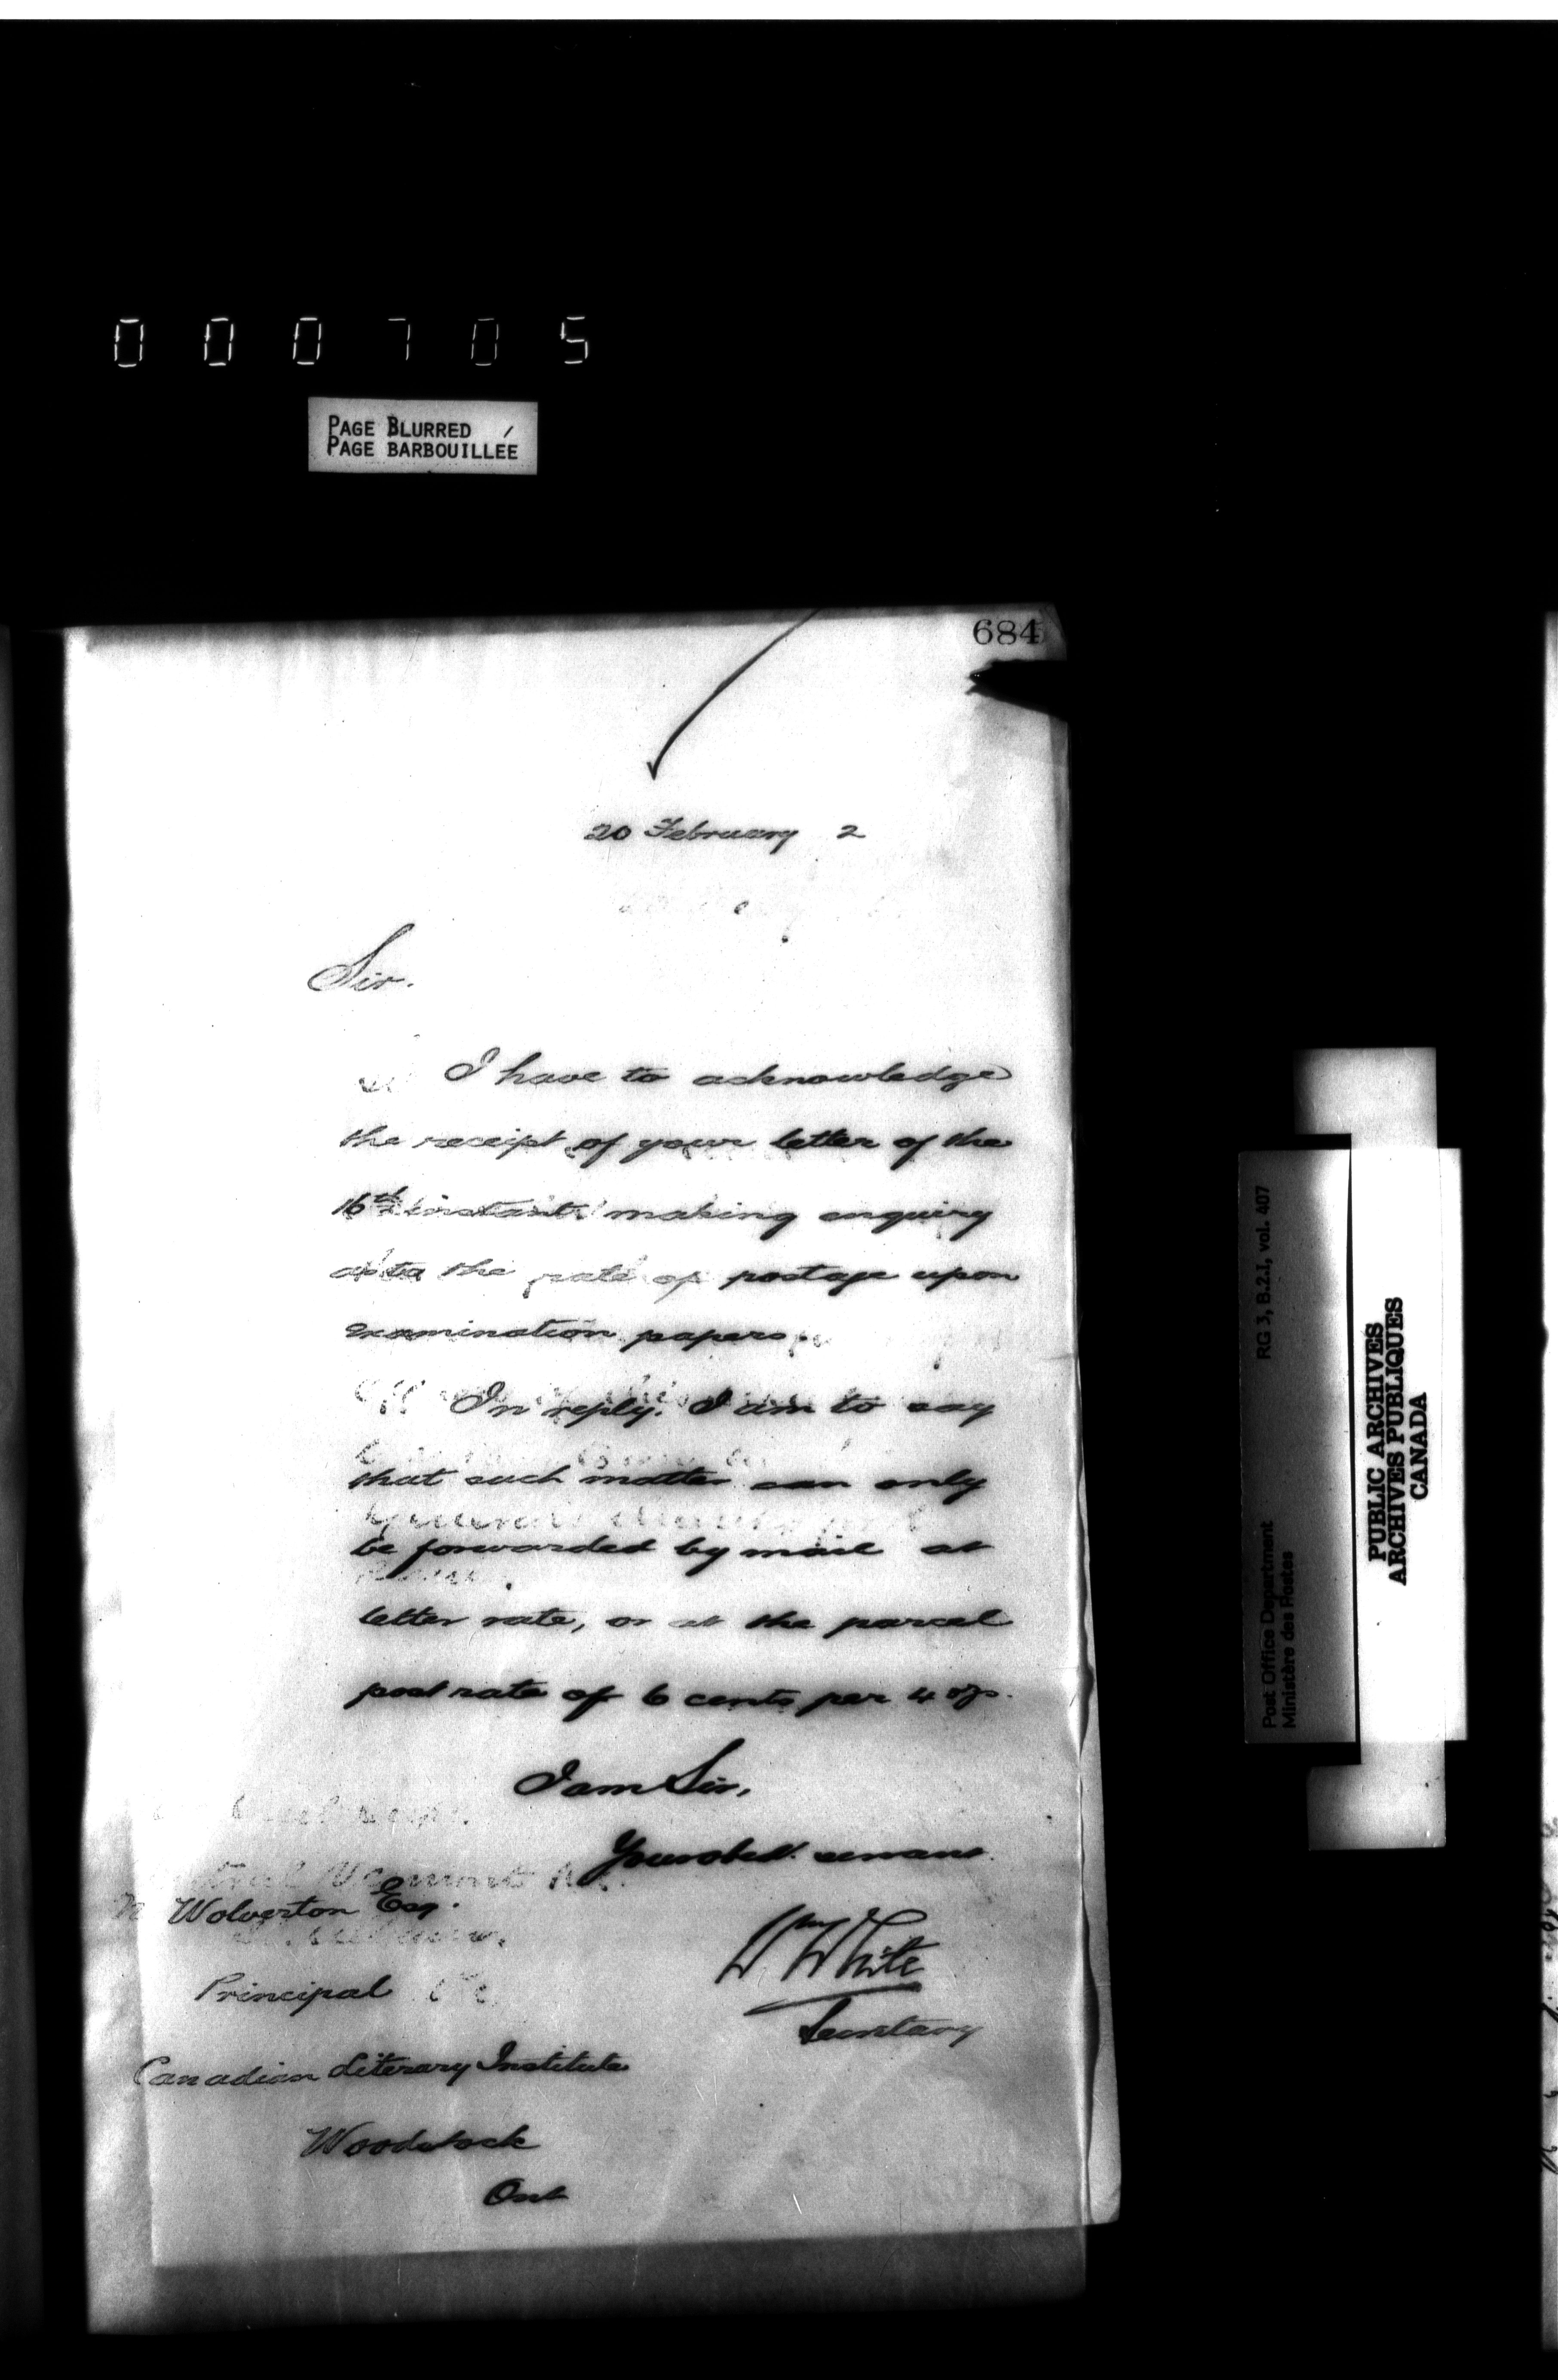 000705
PAGE BLURRED
PAGE BARBOUILLÉE
684
20 February 2
Sir.
I have to acknowledge
the receipt of your letter of the
16th instant making enquiry
as to the rate of postage upon
examination papers.
In reply. I am to say
that such matter can only
be forwarded by mail at
letter rate, or at the parcel
post rate of 6 cents per 4 ozs.
I am Sir,
Your obedt. servant.
Wm White
Secretary
N Wolverton Esq.
Principal
Canadian Literary Institute
Woodstock
Ont
Post Office Department RG 3, B.2.I, vol. 407
Ministère des Postes
PUBLIC ARCHIVES
ARCHIVES PUBLIQUES
CANADA